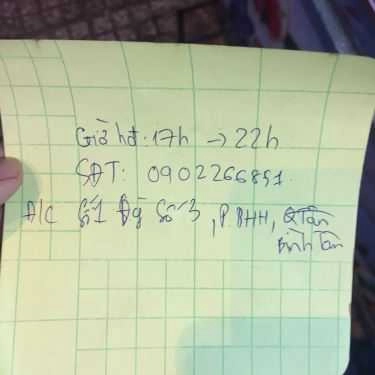 Giờ hđ: 17h → 22h
SĐT: 0902266851
Đ/C Số 1 Đg Số 3, P. BHH, Q Tân
Bình Tân